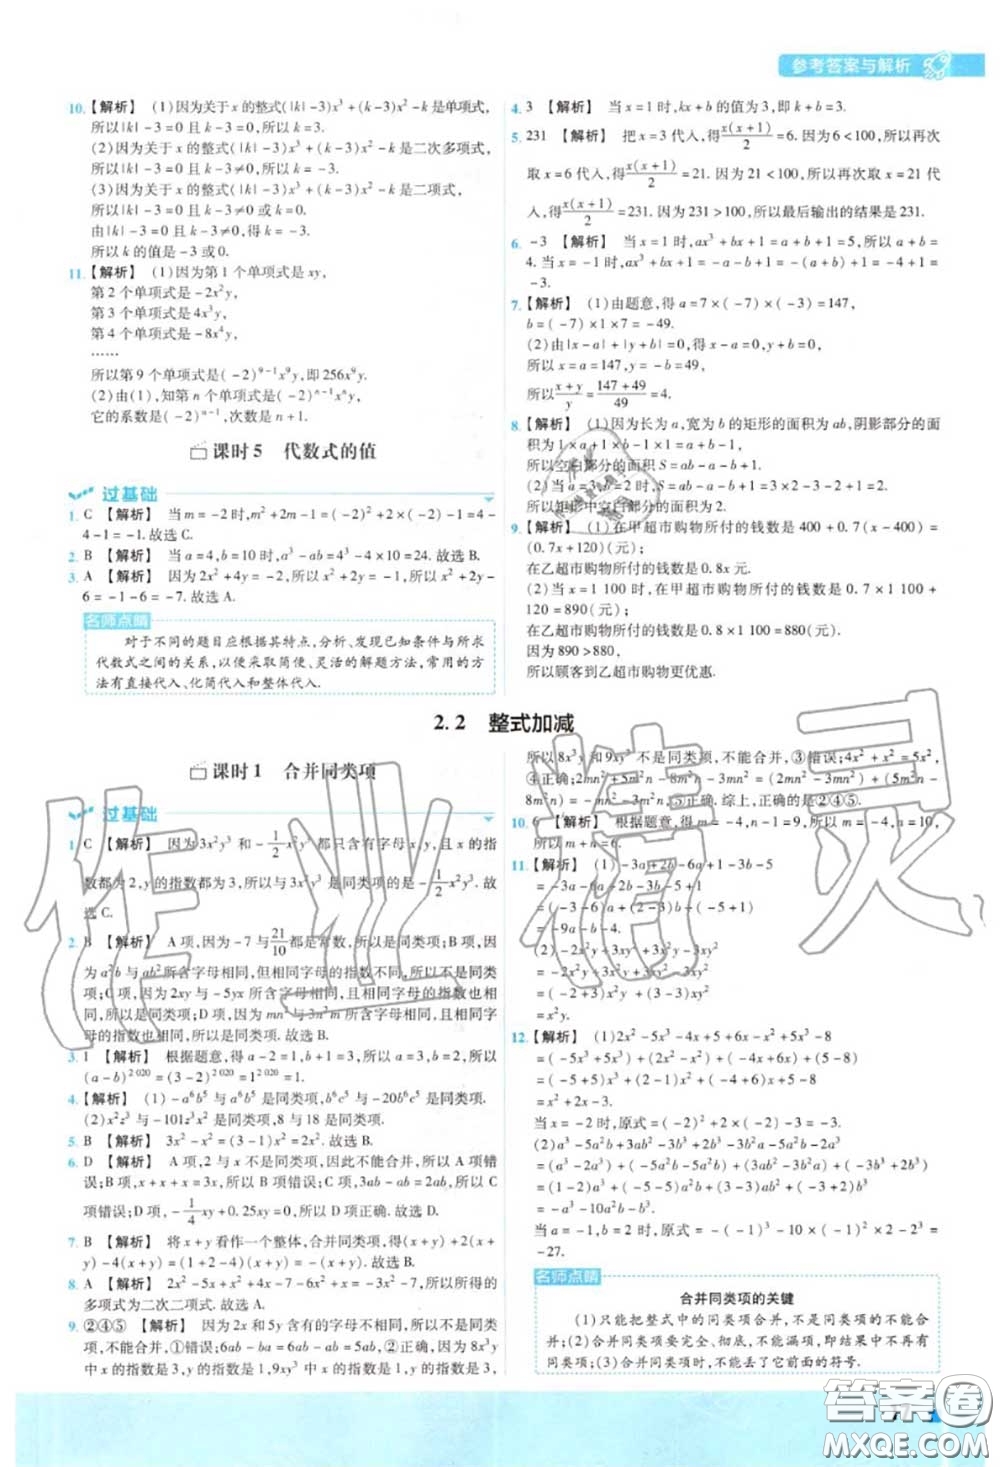 参考答案与解析
10.【解析】 (1)因为关于x的整式(|k|-3)x³+(k-3)x²-k是单项式,
所以|k|-3=0且k-3=0,所以k=3.
(2)因为关于x的整式(|k|-3)x³+(k-3)x²-k是二次多项式,
所以|k|-3=0且k-3≠0,所以k=-3.
(3)因为关于x的整式(|k|-3)x³+(k-3)x²-k是二项式,
所以|k|-3=0且k-3≠0或k=0.
由|k|-3=0且k-3≠0,得k=-3.
所以k的值是-3或0.
11.【解析】 (1)因为第1个单项式是xy,
第2个单项式是-2x²y,
第3个单项式是4x³y,
第4个单项式是-8x⁴y,
……
所以第9个单项式是(-2)⁹⁻¹x⁹y,即256x⁹y.
(2)由(1),知第n个单项式是(-2)ⁿ⁻¹xⁿy,
它的系数是(-2)ⁿ⁻¹,次数是n+1.
课时5 代数式的值
过基础
1. C 【解析】 当m=-2时,m²+2m-1=(-2)²+2×(-2)-1=4-
4-1=-1.故选C.
2. B 【解析】 当a=4,b=10时,a³-ab=4³-4×10=24.故选B.
3. A 【解析】 因为2x²+4y=-2,所以x²+2y=-1,所以x²+2y-
6=-1-6=-7.故选A.
名师点睛
对于不同的题目应根据其特点,分析、发现已知条件与所求
代数式之间的关系,以便采取简便、灵活的解题方法,常用的方
法有直接代入、化简代入和整体代入.
4. 3 【解析】 当x=1时,kx+b的值为3,即k+b=3.
5. 231 【解析】 把x=3代入,得x(x+1)/2=6.因为6<100,所以再次
取x=6代入,得x(x+1)/2=21.因为21<100,所以再次取x=21代
入,得x(x+1)/2=231.因为231>100,所以最后输出的结果是231.
6. -3 【解析】 当x=1时,ax³+bx+1=a+b+1=5,所以a+b=
4.当x=-1时,ax³+bx+1=-a-b+1=-(a+b)+1=-4+1=
-3.
7.【解析】 (1)由题意,得a=7×(-7)×(-3)=147,
b=(-7)×1×7=-49.
(2)由|x-a|+|y+b|=0,得x-a=0,y+b=0,
所以x=a=147,y=-b=49,
所以x+y/y=147+49/49=4.
8.【解析】 (1)因为长为a,宽为b的矩形的面积为ab,阴影部分的
面积为1×a+1×b-1×1=a+b-1,
所以空白部分的面积S=ab-a-b+1.
(2)当a=3,b=2时,S=3×2-3-2+1=2,
所以矩形中空白部分的面积为2.
9.【解析】 (1)在甲超市购物所付的钱数是400+0.7(x-400)=
(0.7x+120)(元);
在乙超市购物所付的钱数是0.8x元.
(2)当x=1 100时,在甲超市购物所付的钱数是0.7×1 100+
120=890(元);
在乙超市购物所付的钱数是0.8×1 100=880(元).
因为890>880,
所以顾客到乙超市购物更优惠.
2.2 整式加减
课时1 合并同类项
过基础
1. C 【解析】 因为3x²y³与-1/2x²y³都只含有字母x和y,且x的指
数都为2,y的指数都为3,所以与3x²y³是同类项的是-1/2x²y³.故
选C.
2. B 【解析】 A项,因为-7与21/10都是常数,所以是同类项;B项,因
为a²b与ab²所含字母相同,但相同字母的指数不同,所以不是同类
项;C项,因为2xy与-5yx所含字母相同,且相同字母的指数也相
同,所以是同类项;D项,因为mn³与3n³m所含字母相同,且相同字
母的指数也相同,所以是同类项.故选B.
3. 1 【解析】 根据题意,得a-2=1,b+1=3,所以a=3,b=2,所以
(a-b)²⁰²⁰=(3-2)²⁰²⁰=1.
4.【解析】 (1)-a⁶b⁵与a⁶b⁵是同类项,b⁶c⁵与-20b⁶c⁵是同类项.
(2)x²z³与-101z³x²是同类项,8与18是同类项.
5. B 【解析】 3x²-x²=(3-1)x²=2x².故选B.
6. D 【解析】 A项,2与x不是同类项,因此不能合并,所以A项错
误;B项,x+x+x=3x,所以B项错误;C项,3ab-ab=2ab,所以C
项错误;D项,-1/4xy+0.25xy=0,所以D项正确.故选D.
7. B 【解析】 将x+y看作一个整体,合并同类项,得(x+y)+2(x+
y)-4(x+y)=(1+2-4)(x+y)=-(x+y).故选B.
8. A 【解析】 2x²-5x+x²+4x-7-6x²=-3x²-x-7,所以所得的
多项式为二次三项式.故选A.
9. ②④⑤ 【解析】 因为2x和5y含有的字母不同,所以不是同类
项,不能合并,①错误;6ab-ba=6ab-ab=5ab,②正确;因为8x³y
中x的指数是3,y的指数是1,9xy³中x的指数是1,y的指数是3,
所以8x³y和9xy³不是同类项,不能合并,③错误;4x²+x²=5x²,
④正确;2mn²+5m²n-8m²n-3mn²=(2mn²-3mn²)+(5m²n-
8m²n)=-mn²-3m²n,⑤正确.综上,正确的是②④⑤.
10. 6 【解析】 根据题意,得m=-4,n-1=9,所以m=-4,n=10,所
以m+n=6.
11.【解析】 (1)-3a+2b-6a+1-3b-5
=-3a-6a+2b-3b+1-5
=(-3-6)a+(2-3)b+(-5+1)
=-9a-b-4.
(2)-2x²y+3xy²+3x²y-3xy²
=-2x²y+3x²y+3xy²-3xy²
=(-2+3)x²y+(3-3)xy²
=x²y.
12.【解析】 (1)2x²-5x³-4x+5+6x-x²+5x³-8
=(-5x³+5x³)+(2x²-x²)+(-4x+6x)+(5-8)
=(-5+5)x³+(2-1)x²+(-4+6)x+(5-8)
=x²+2x-3.
当x=-2时,原式=(-2)²+2×(-2)-3=-3.
(2)a³-5a²b+3ab²-3b³+3b³-2ab²-5a²b-ab²-2a³
=(a³-2a³)+(-5a²b-5a²b)+(3ab²-2ab²-ab²)+(-3b³+3b³)
=(1-2)a³+(-5-5)a²b+(3-2-1)ab²+(-3+3)b³
=-a³-10a²b.
当a=-1,b=2时,原式=-(-1)³-10×(-1)²×2=1-20=
名师点睛
合并同类项的关键
(1)只能把整式中的同类项合并,不是同类项的不能合
并;(2)合并同类项要完全、彻底,不能漏项,即结果中不再有
同类项;(3)合并同类项时,不能丢了它前面的符号.
作业精灵
答案圈
MXQE.COM